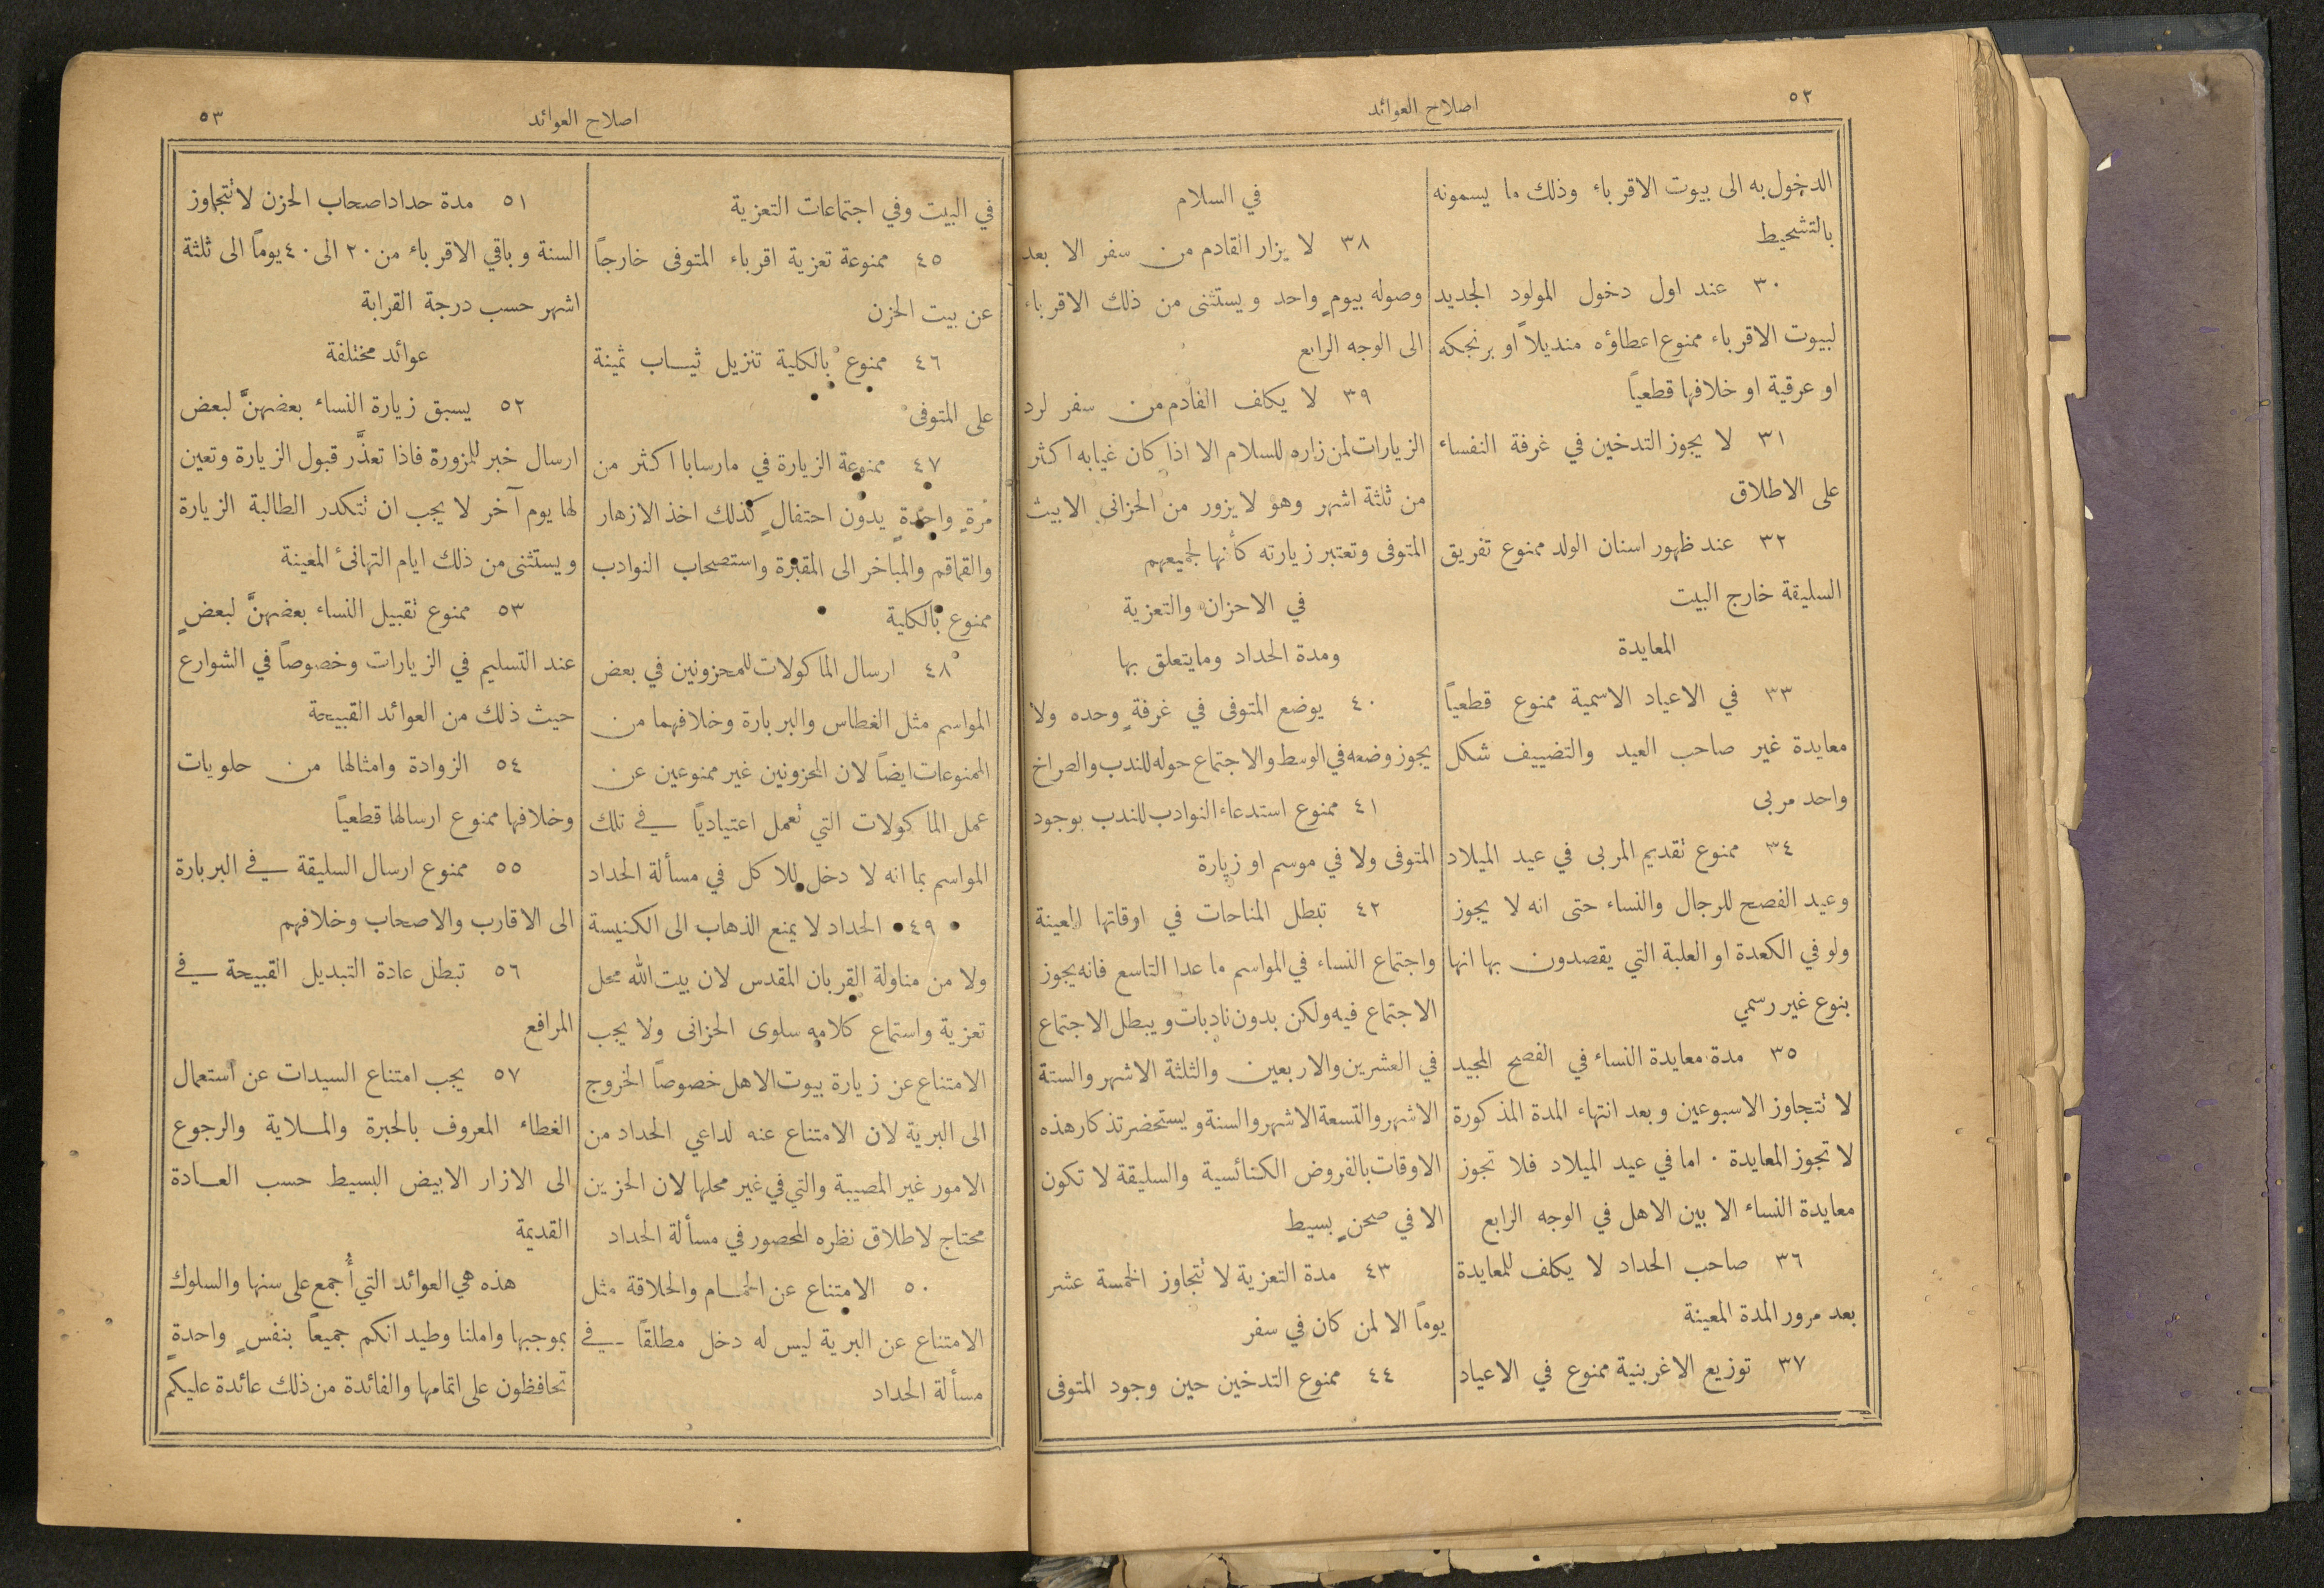 ٥٢
اصلاح العوائد
الدخول به الى بيوت الاقرباء وذلك ما يسمونه
بالتشحيط
٣٠ عند اول دخول المولود الجديد
لبيوت الاقرباء ممنوع اعطاؤه منديلاً او برنجكه
او عرقية او خلافها قطعياً
٣١ لا يجوز التدخين في غرفة النفساء
على الاطلاق
٣٢ عند ظهور اسنان الولد ممنوع تفريق
السليقة خارج البيت
المعايدة
٣٣ في الاعياد الاسمية ممنوع قطعياً
معايدة غير صاحب العيد والتضييف شكل
واحد مربى
٣٤ ممنوع تقديم المربى في عيد الميلاد
وعيد الفصح للرجال والنساء حتى انه لا يجوز
ولو في الكعدة او العلبة التي يقصدون بها انها
بنوع غير رسمي
٣٥ مدة معايدة النساء في الفصح المجيد
لا تتجاوز الاسبوعين وبعد انتهاء المدة المذكورة
لا تجوز المعايدة . اما في عيد الميلاد فلا تجوز
معايدة النساء الا بين الاهل في الوجه الرابع
٣٦ صاحب الحداد لا يكلف للمعايدة
بعد مرور المدة المعينة
٣٧ توزيع الاغربنية ممنوع في الاعياد
في السلام
٣٨ لا يزار القادم من سفر الا بعد
وصوله بيومٍ واحد ويستثنى من ذلك الاقرباء
الى الوجه الرابع
٣٩ لا يكلف القادم من سفر لرد
الزيارات لمن زاره للسلام الا اذا كان غيابه اكثر
من ثلثة اشهر وهو لا يزور من الحزانى الا بيت
المتوفى وتعتبر زيارته كأنها لجميعهم
في الاحزان والتعزية
ومدة الحداد وما يتعلق بها
٤٠ يوضع المتوفى في غرفةٍ وحده ولا
يجوز وضعه في الوسط والاجتماع حوله للندب والصراخ
٤١ ممنوع استدعاء النوادب للندب بوجود
المتوفى ولا في موسم او زيارة
٤٢ تبطل المناحات في اوقاتها المعينة
واجتماع النساء في المواسم ما عدا التاسع فانه يجوز
الاجتماع فيه ولكن بدون نادبات ويبطل الاجتماع
في العشرين والاربعين والثلثة الاشهر والستة
الاشهر والتسعة الاشهر والسنة ويستحضر تذكار هذه
الاوقات بالفروض الكنائسية والسليقة لا تكون
الا في صحنٍ بسيط
٤٣ مدة التعزية لا تتجاوز الخمسة عشر
يوماً الا لمن كان في سفر
٤٤ ممنوع التدخين حين وجود المتوفى
اصلاح العوائد
٥٣
في البيت وفي اجتماعات التعزية
٤٥ ممنوعة تعزية اقرباء المتوفى خارجاً
عن بيت الحزن
٤٦ ممنوع بالكلية تنزيل ثياب ثمينة
على المتوفى
٤٧ ممنوعة الزيارة في مارسابا اكثر من
مرةٍ واحدةٍ بدون احتفالٍ كذلك اخذ الازهار
والقماقم والمباخر الى المقبرة واستصحاب النوادب
ممنوع بالكلية
٤٨ ارسال الماكولات للمحزونين في بعض
المواسم مثل الغطاس والبربارة وخلافهما من
الممنوعات ايضاً لان المحزونين غير ممنوعين عن
عمل الماكولات التي تعمل اعتيادياً في تلك
المواسم بما انه لا دخل للاكل في مسألة الحداد
٤٩ الحداد لا يمنع الذهاب الى الكنيسة
ولا من مناولة القربان المقدس لان بيت الله محل
تعزية واستماع كلامه سلوى الحزانى ولا يجب
الامتناع عن زيارة بيوت الاهل خصوصاً الخروج
الى البرية لان الامتناع عنه لداعي الحداد من
الامور غير المصيبة والتي في غير محلها لان الحزين
محتاج لاطلاق نظره المحصور في مسألة الحداد
٥٠ الامتناع عن الحمام والحلاقة مثل
الامتناع عن البرية ليس له دخل مطلقاً في
مسألة الحداد
٥١ مدة حداد اصحاب الحزن لا تتجاوز
السنة وباقي الاقرباء من ٢٠ الى ٤٠ يوماً الى ثلثة
اشهر حسب درجة القرابة
عوائد مختلفة
٥٢ يسبق زيارة النساء بعضهنَّ لبعض
ارسال خبر للمزورة فاذا تعذَّر قبول الزيارة وتعين
لها يوم آخر لا يجب ان تتكدر الطالبة الزيارة
ويستثنى من ذلك ايام التهانئ المعينة
٥٣ ممنوع تقبيل النساء بعضهنَّ لبعضٍ
عند التسليم في الزيارات وخصوصاً في الشوارع
حيث ذلك من العوائد القبيحة
٥٤ الزوادة وامثالها من حلويات
وخلافها ممنوع ارسالها قطعياً
٥٥ ممنوع ارسال السليقة في البربارة
الى الاقارب والاصحاب وخلافهم
٥٦ تبطل عادة التبديل القبيحة في
المرافع
٥٧ يجب امتناع السيدات عن استعمال
الغطاء المعروف بالحبرة والملاية والرجوع
الى الازار الابيض البسيط حسب العادة
القديمة
هذه هي العوائد التي أُجمع على سنها والسلوك
بموجبها واملنا وطيد انكم جميعاً بنفسٍ واحدةٍ
تحافظون على اتمامها والفائدة من ذلك عائدة عليكم